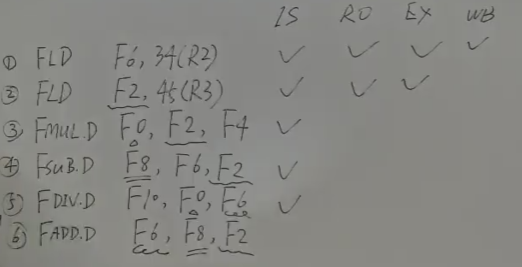 IS RO EX WB
① FLD F6, 34(R2) ✓ ✓ ✓ ✓
② FLD F2, 45(R3) ✓ ✓ ✓
③ FMUL.D F0, F2, F4 ✓
④ FSUB.D F8, F6, F2 ✓
⑤ FDIV.D F10, F0, F6 ✓
⑥ FADD.D F6, F8, F2